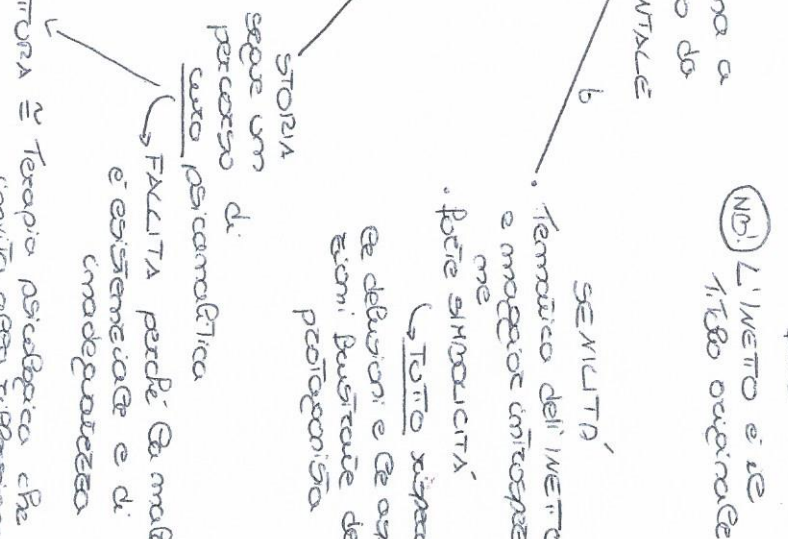 na a
o da
NTALE
b
NB! L'INETTO è il
titolo originale
SENILITÀ
· Tematica dell'INETTO
e maggior introspe
ne
· forte SIMBOLICITÀ
↳ TUTTO rispec
le delusioni e le asp
zioni frustrate de
protagonista
STORIA
segue un
percorso di
cura psicanalitica
↳ FALLITA perché la mal
è esistenziale e di
inadeguatezza
TURA ≅ Terapia psicologica che